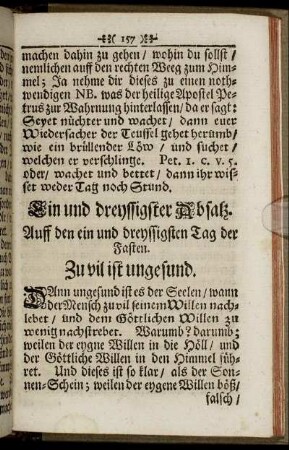 157
machen dahin zu gehen / wohin du sollst /
nemlichen auff den rechten Weeg zum Him-
mel; Ja nehme dir dieses zu einen noth-
wendigen NB. was der heilige Apostel Pe-
trus zur Wahrnung hinterlassen / da er sagt:
Seyet nüchter und wachet / dann euer
Widersacher der Teuffel gehet herumb /
wie ein brüllender Löw / und suchet /
welchen er verschlinge. Pet. 1. c. v. 5.
oder / wachet und bettet / dann ihr wis-
set weder Tag noch Stund.
Ein und dreyssigster Absatz.
Auff den ein und dreyssigsten Tag der
Fasten.
Zu vil ist ungesund.
DAnn ungesund ist es der Seelen / wann
der Mensch zu vil seinem Willen nach-
lebet / und dem Göttlichen Willen zu
wenig nachstrebet. Warumb? darumb;
weilen der eygne Willen in die Höll / und
der Göttliche Willen in den Himmel füh-
ret. Und dieses ist so klar / als der Son-
nen-Schein; weilen der eygene Willen böß /
falsch /